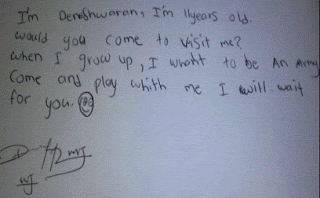 I'm Deneshwaran, I'm 11years old.
would you come to visit me?
when I grow up, I whant to be An Army
Come and play whith me I will wait
for you.